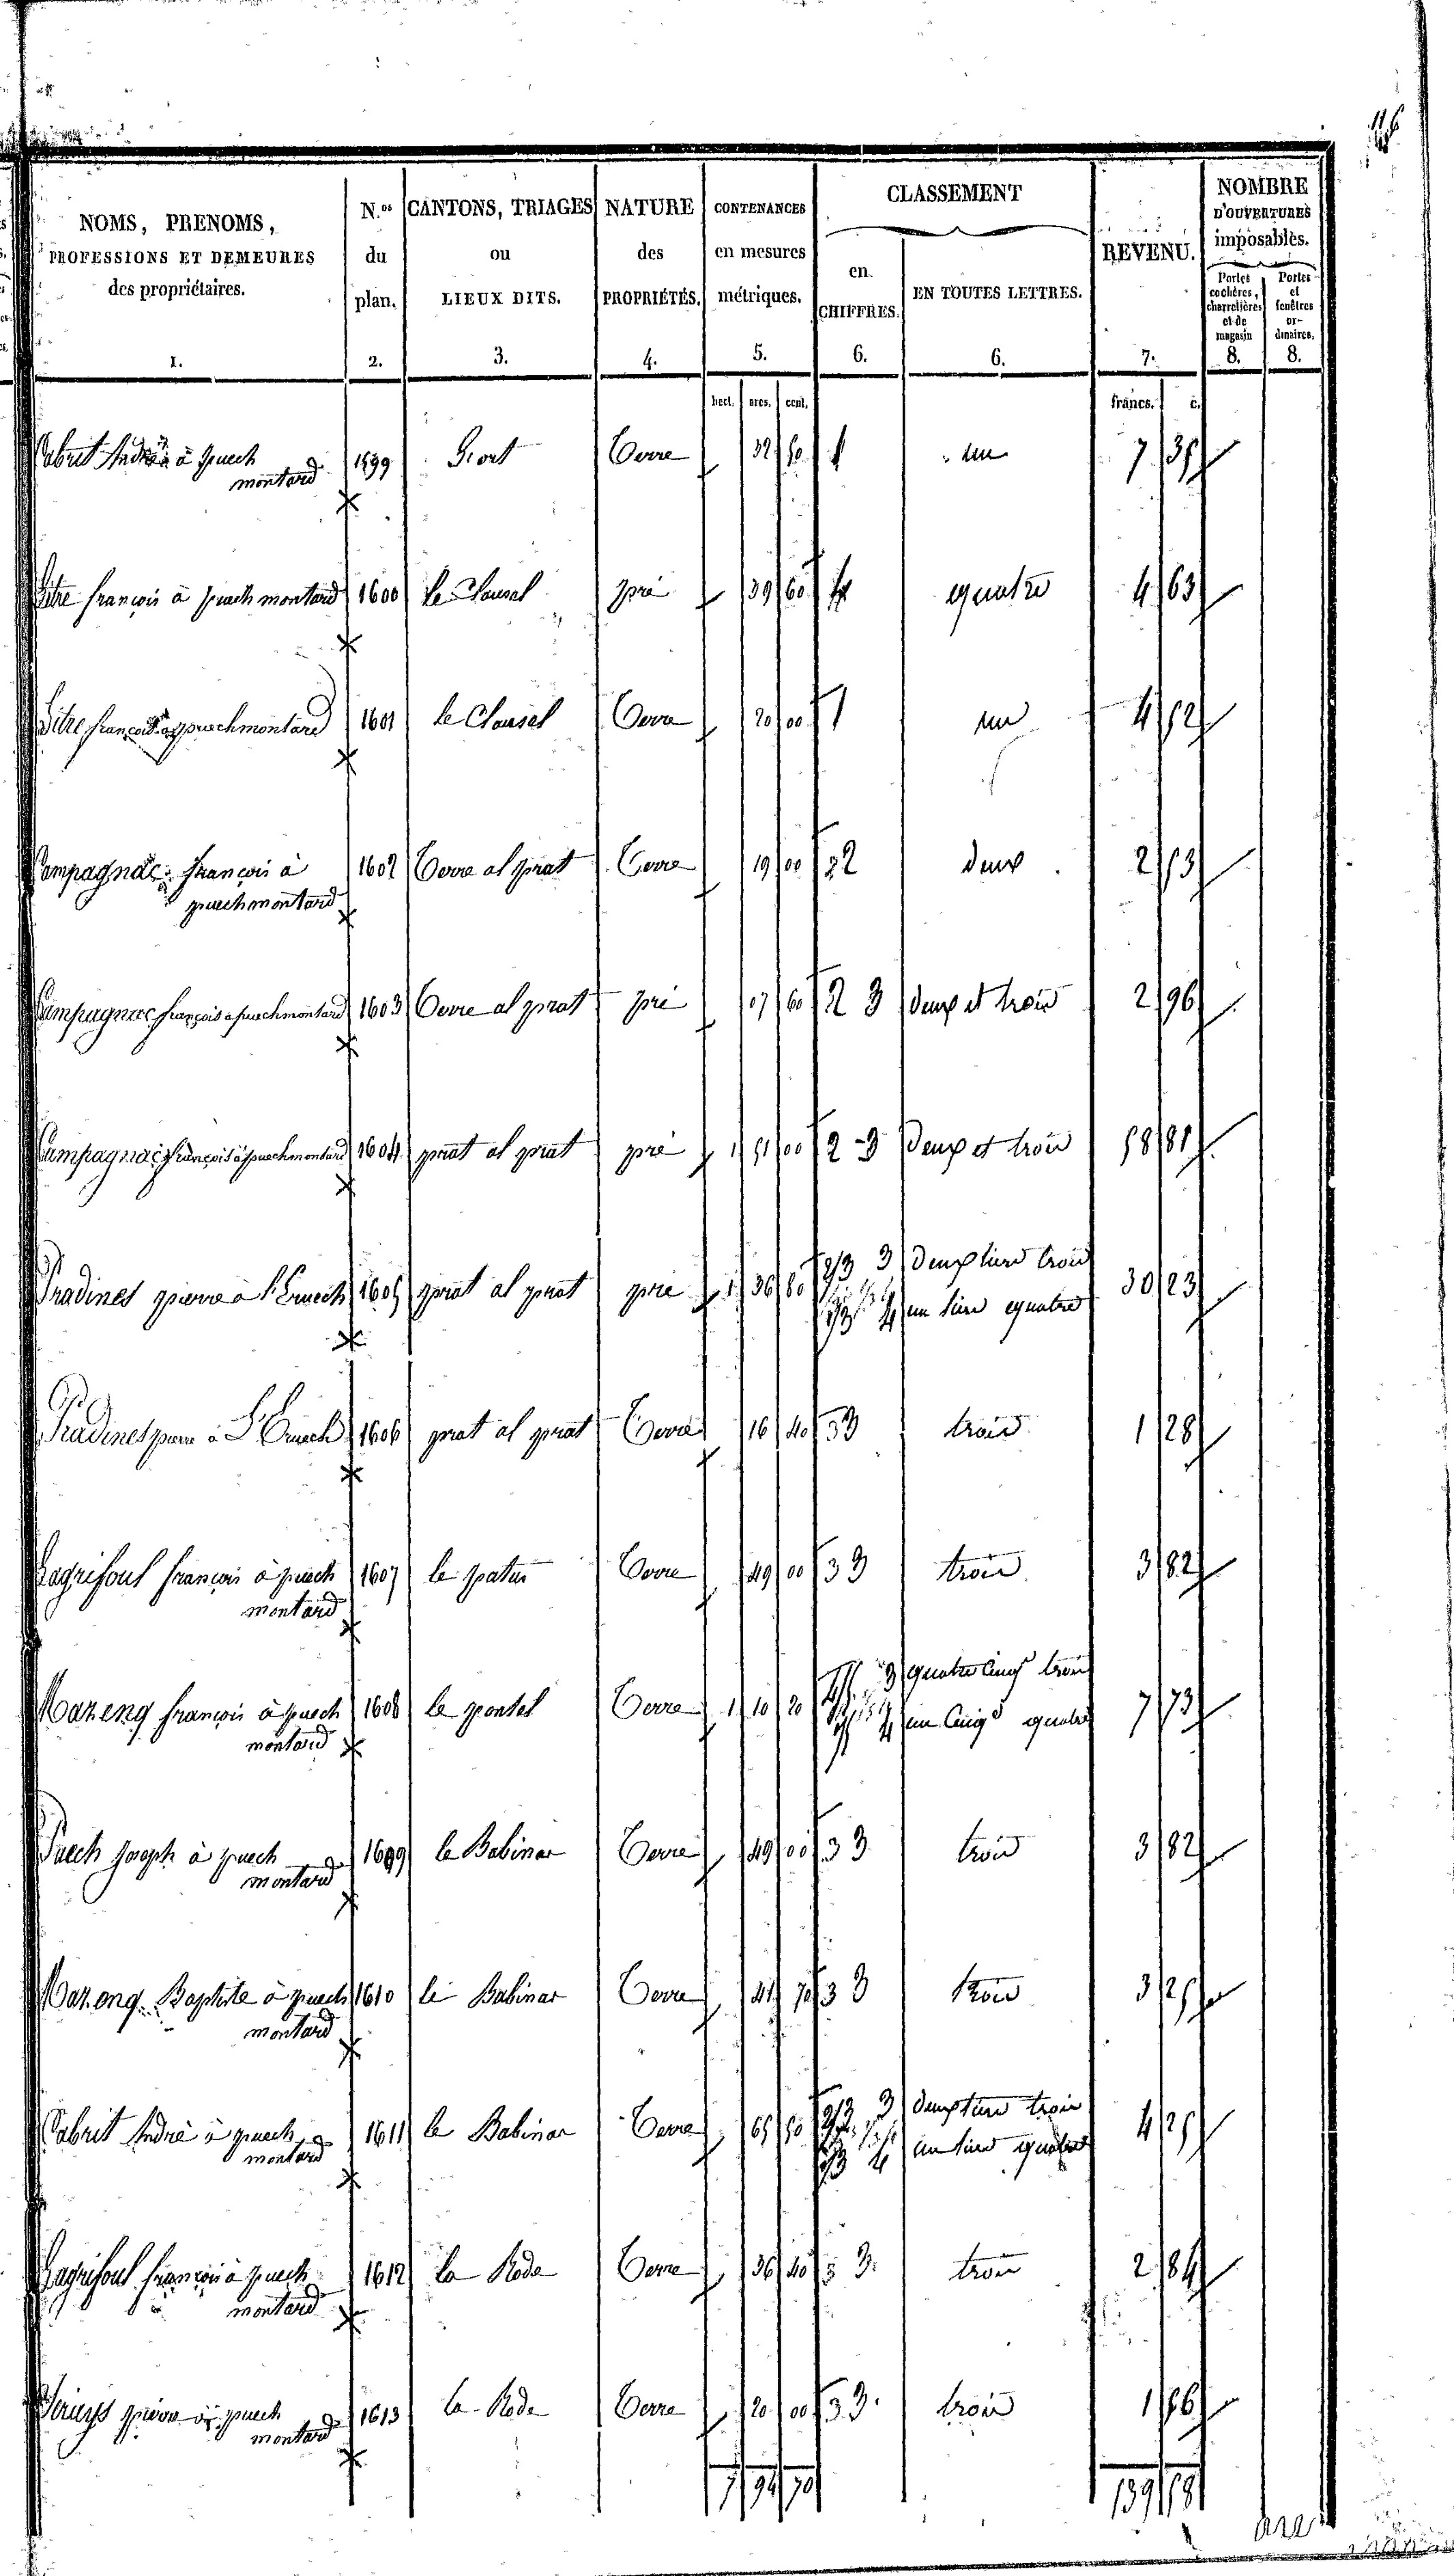 116
NOMS, PRENOMS,
PROFESSIONS ET DEMEURES
des propriétaires.
1.
N.os
du
plan.
2.
CANTONS, TRIAGES
ou
LIEUX DITS.
3.
NATURE
des
PROPRIÉTÉS.
4.
CONTENANCES
en mesures
métriques.
5.
CLASSEMENT
en
CHIFFRES.
6.
EN TOUTES LETTRES.
6.
REVENU.
7.
NOMBRE
D'OUVERTURES
imposables.
Portes
cochères,
charretières
et de
magasin
8.
Portes
et
fenêtres
or-
dinaires.
8.
hect. ares. cent. francs. c.
Cabrit André à puech 1599 Terre 32 50 1 un 7 35
montard
françois à puech montard 1600 le Clausel pré 39 60 4 quatre 4 63
françois à puechmontard 1601 le Clausel Terre 20 00 1 un 4 52
Campagnac françois à 1602 Terre al prat Terre 19 00 2 deux 2 53
puechmontard
Campagnac françois à puechmontard 1603 Terre al prat pré 07 60 2 3 deux et trois 2 96
Campagnac françois à puechmontard 1604 prat al prat pré 1 51 00 2 3 deux et trois 58 81
Pradines pierre à 1605 prat al prat pré 1 36 80 2/3 3 deux tiers trois 30 23
1/3 4 un tiers quatre
Pradines pierre à 1606 prat al prat Terre 16 40 3 trois 1 28
Lagrifoul françois à puech 1607 le patus Terre 49 00 3 trois 3 82
montard
Mazenq françois à puech 1608 le pontel Terre 1 10 20 4/5 3 quatre cinq trois 7 73
montard 1/5 4 un cinq quatre
Puech joseph à puech 1609 le Babinar Terre 49 00 3 trois 3 82
montard
Mazenq Baptiste à puech 1610 le Babinar Terre 41 70 3 trois 3 25
montard
Cabrit André à puech 1611 le Babinar Terre 65 50 2/3 3 deux tiers trois 4 25
montard 1/3 4 un tiers quatre
Lagrifoul françois à puech 1612 la Rode Terre 36 40 3 trois 2 84
montard
pierre à puech 1613 la Rode Terre 20 00 3 trois 1 56
montard
7 94 70 139 58